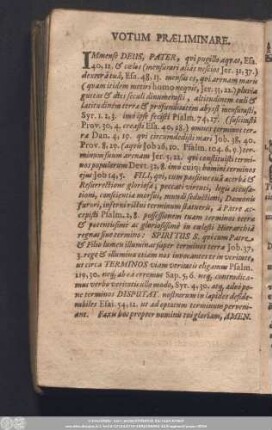 VOTUM PRÆLIMINARE.
IMmense DEUS, PATER, qui pugillo aquas, Esa.
40, 12. & cœlos (mensurari alias nescios Jer. 31, 37.)
dexterâ tuâ, Esa. 48, 13. mensus es, qui arenam maris
(quam itidem metiri homo nequit, Jer. 33, 22.) pluviæ
guttas & dies seculi dinumerasti, altitudinem cœli &
latitudinem terræ & profunditatem abyssi mensurasti,
Syr. 1. 2. 3. imò ipse fecisti Psalm. 74, 17. (
Prov. 30, 4. creasti Esa. 40, 28.) omnes terminos ter-
ræ Dan. 4, 19. qui circumdedisti mari Job. 38, 40.
Prov. 8, 29. (aquis Job 26, 10. Psalm. 104, 6. 9. ) ter-
minum suum arenam Jer. 5, 22. qui constituisti termi-
nos populorum Deut. 32, 8. imò cuivis homini terminos
ejus Job 14, 5. FILI, qui, cum passione tuâ acerbâ &
Resurrectione gloriosâ; peccati virtuti, legis accusa-
tioni, conscientiæ morsui, mundi sodalitati, Dæmonis
furori, inferni vel orbi terminum statueris, à Patre ac-
cepisti Psalm. 2, 8. possessionem tuam terminos terræ
& potentissimè ac gloriosissimè in cœlesti Hierarchiâ
regnas sine termino: SPIRITUS S. qui cum Patre
& Filio lumen illuminas super terminos terræ Job. 37,
3. rege & illumina etiam nos invocantes te in veritate,
ut circa TERMINOS viam veritatis eligamus Psalm.
119, 30. neq; ab eâ erremus Sap. 5, 6. neq, contradica-
mus verbo veritatis ullo modo, Syr. 4, 30. atq, adeò po-
ne terminos DISPUTAT. nostrarum in lapides deside-
rabiles Esai. 54, 12. ut ad optatum terminum perveni-
ant. Faxis hoc propter nominis tui gloriam, AMEN.